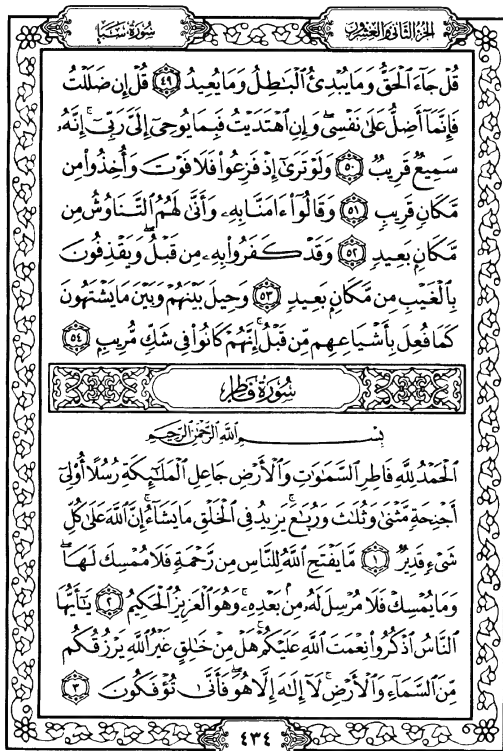 الجزء الثاني والعشرون
سُورَةُ سَبَإٍ
قُلْ جَآءَ ٱلْحَقُّ وَمَا يُبْدِئُ ٱلْبَٰطِلُ وَمَا يُعِيدُ ٤٩ قُلْ إِن ضَلَلْتُ
فَإِنَّمَآ أَضِلُّ عَلَىٰ نَفْسِى ۖ وَإِنِ ٱهْتَدَيْتُ فَبِمَا يُوحِىٓ إِلَىَّ رَبِّىٓ ۚ إِنَّهُۥ
سَمِيعٌ قَرِيبٌ ٥٠ وَلَوْ تَرَىٰٓ إِذْ فَزِعُوا۟ فَلَا فَوْتَ وَأُخِذُوا۟ مِن
مَّكَانٍ قَرِيبٍ ٥١ وَقَالُوٓا۟ ءَامَنَّا بِهِۦ وَأَنَّىٰ لَهُمُ ٱلتَّنَاوُشُ مِن
مَّكَانٍۭ بَعِيدٍ ٥٢ وَقَدْ كَفَرُوا۟ بِهِۦ مِن قَبْلُ ۖ وَيَقْذِفُونَ
بِٱلْغَيْبِ مِن مَّكَانٍۭ بَعِيدٍ ٥٣ وَحِيلَ بَيْنَهُمْ وَبَيْنَ مَا يَشْتَهُونَ
كَمَا فُعِلَ بِأَشْيَاعِهِم مِّن قَبْلُ ۚ إِنَّهُمْ كَانُوا۟ فِى شَكٍّ مُّرِيبٍۭ ٥٤
سُورَةُ فَاطِرٍ
بِسْمِ ٱللَّهِ ٱلرَّحْمَٰنِ ٱلرَّحِيمِ
ٱلْحَمْدُ لِلَّهِ فَاطِرِ ٱلسَّمَٰوَٰتِ وَٱلْأَرْضِ جَاعِلِ ٱلْمَلَٰٓئِكَةِ رُسُلًا أُو۟لِىٓ
أَجْنِحَةٍ مَّثْنَىٰ وَثُلَٰثَ وَرُبَٰعَ ۚ يَزِيدُ فِى ٱلْخَلْقِ مَا يَشَآءُ ۚ إِنَّ ٱللَّهَ عَلَىٰ كُلِّ
شَىْءٍ قَدِيرٌ ١ مَّا يَفْتَحِ ٱللَّهُ لِلنَّاسِ مِن رَّحْمَةٍ فَلَا مُمْسِكَ لَهَا ۖ
وَمَا يُمْسِكْ فَلَا مُرْسِلَ لَهُۥ مِنۢ بَعْدِهِۦ ۚ وَهُوَ ٱلْعَزِيزُ ٱلْحَكِيمُ ٢ يَٰٓأَيُّهَا
ٱلنَّاسُ ٱذْكُرُوا۟ نِعْمَتَ ٱللَّهِ عَلَيْكُمْ ۚ هَلْ مِنْ خَٰلِقٍ غَيْرُ ٱللَّهِ يَرْزُقُكُم
مِّنَ ٱلسَّمَآءِ وَٱلْأَرْضِ ۚ لَآ إِلَٰهَ إِلَّا هُوَ ۖ فَأَنَّىٰ تُؤْفَكُونَ ٣
٤٣٤